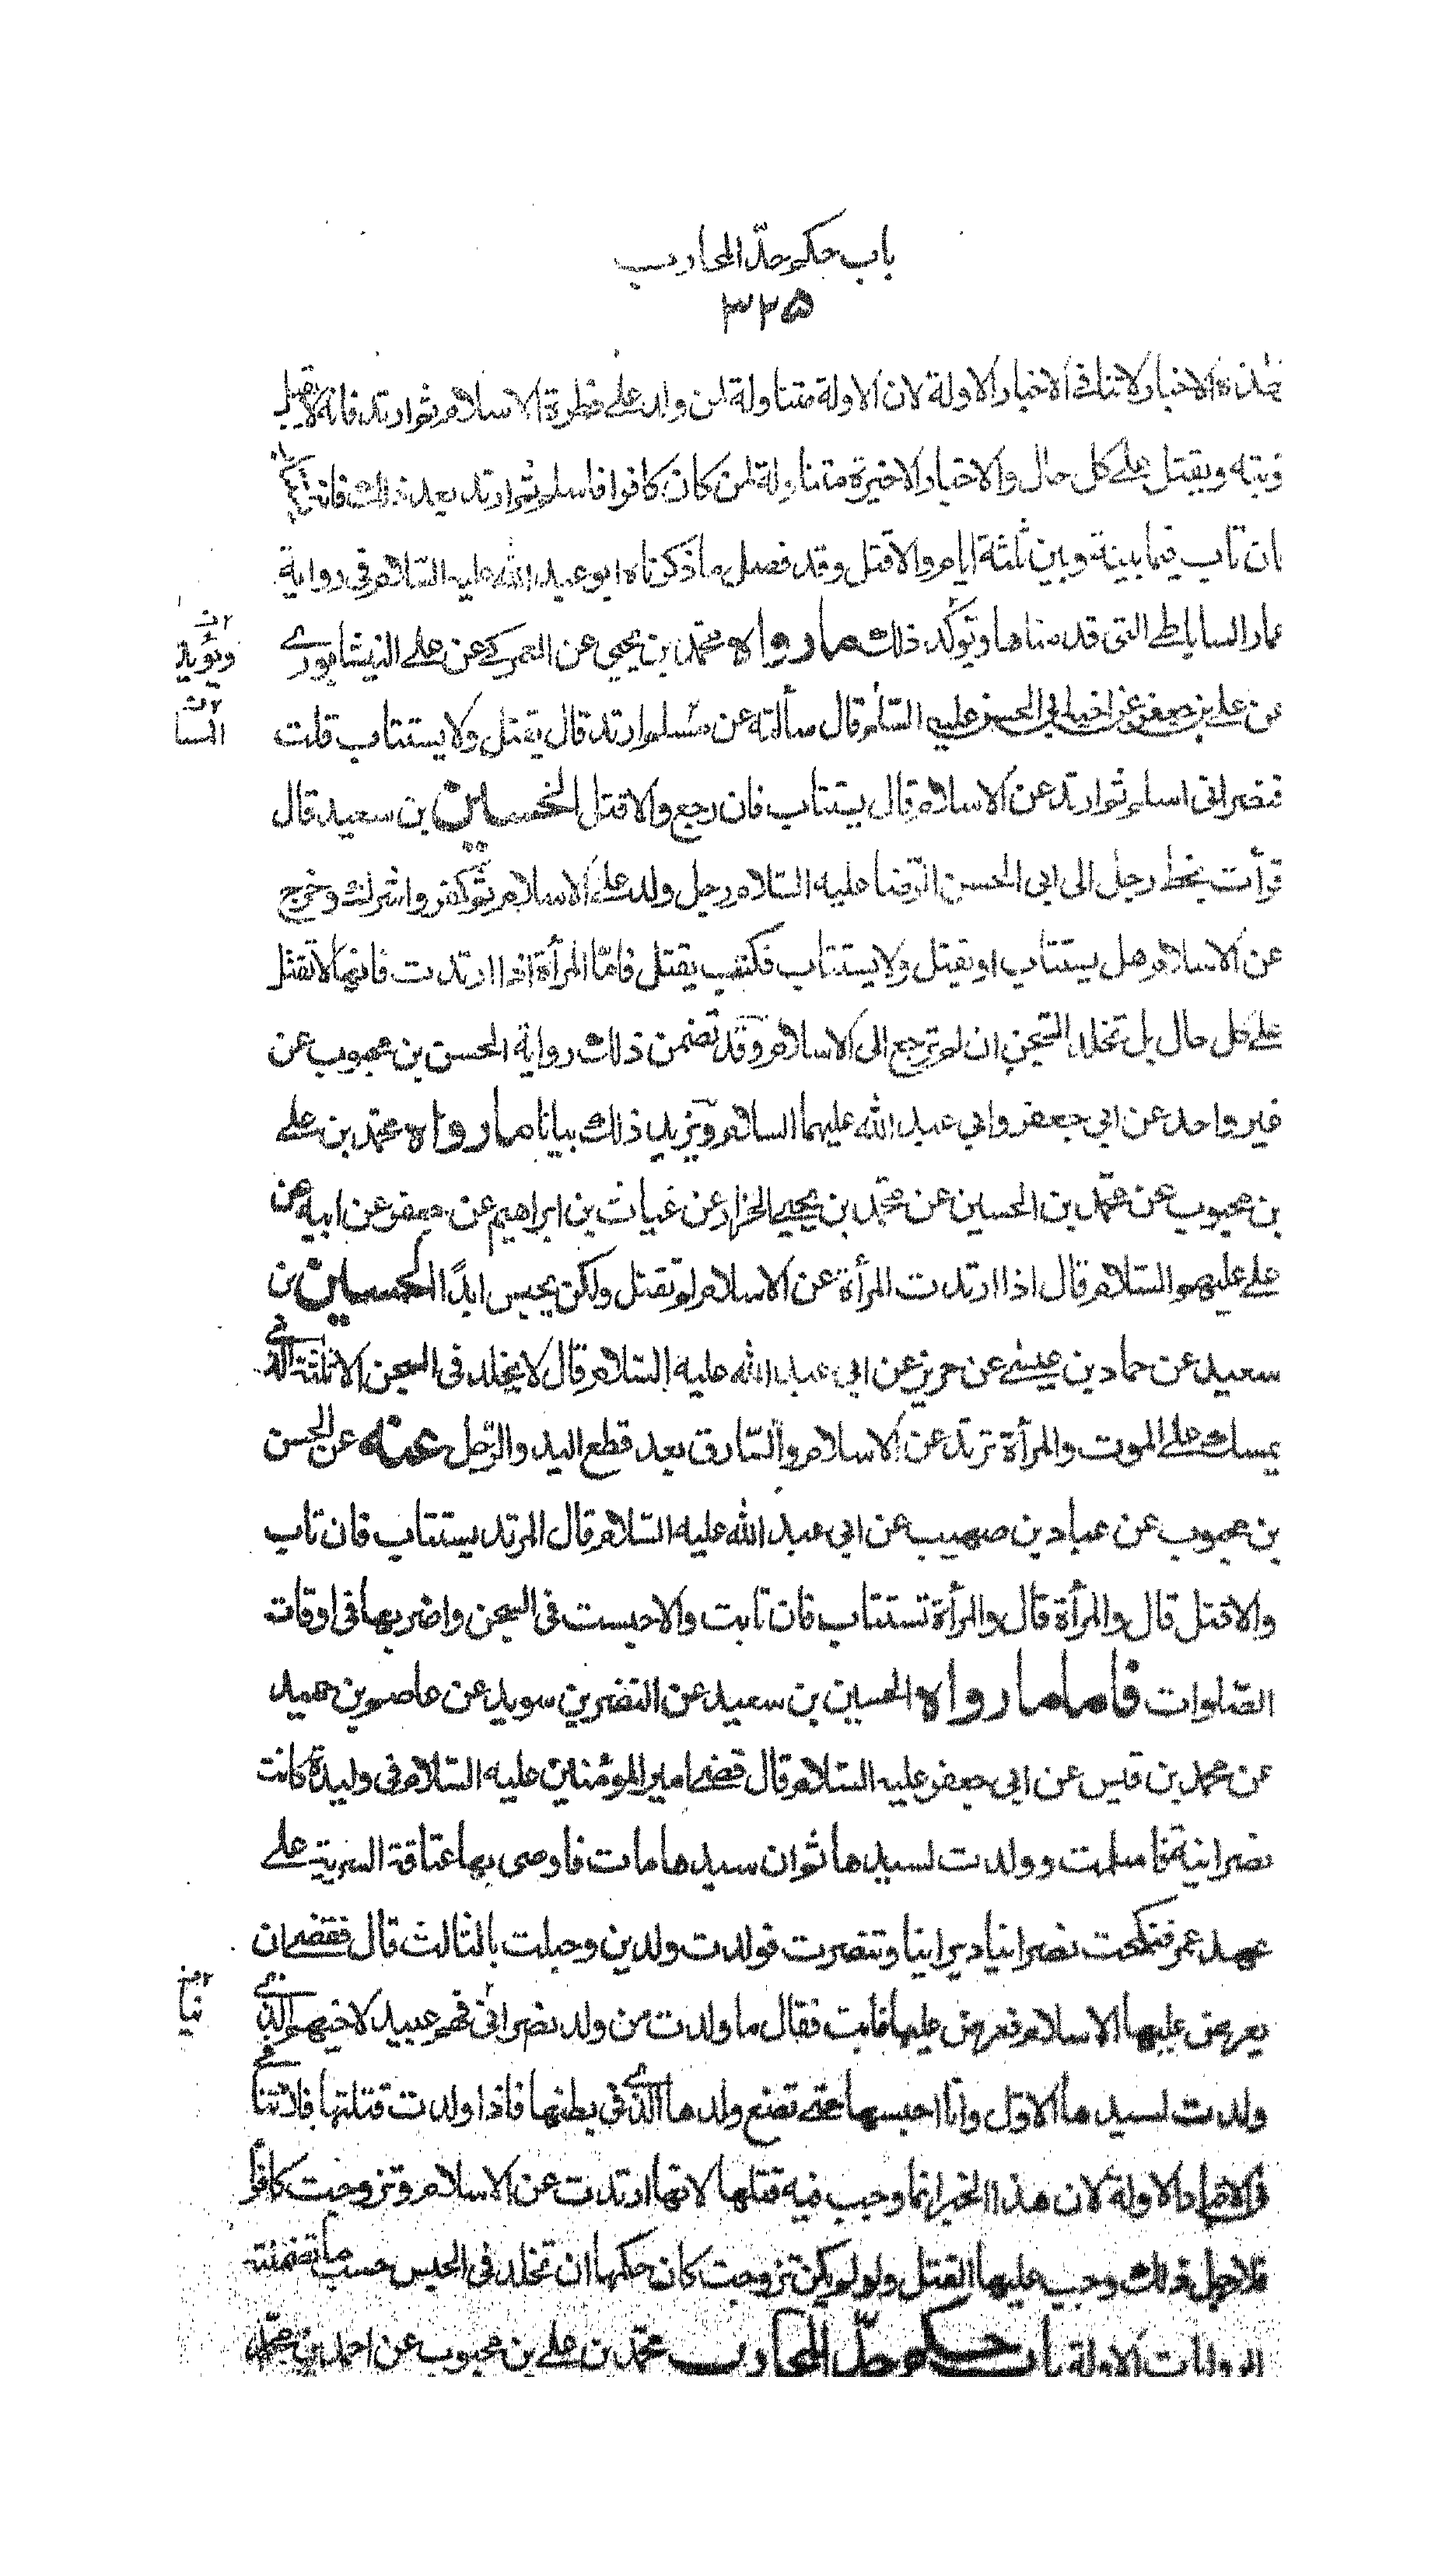 باب حكم حدّ المحارب
٣٢٥
هذه الاخبار لاتنافي الاخبار الاولة لان الاولة متناولة لمن ولد على فطرة الاسلام ثم ارتد فانه لا يقبل
توبته ويقتل على كل حال والاخبار الاخيرة متناولة لمن كان كافرا فاسلم ثم ارتد بعد ذلك فانه
فان تاب فيما بينه وبين ثلثة ايام والا قتل وقد فصل ما ذكرناه ابو عبد الله عليه السّلام في رواية
عمار الساباطي التي قدمناها ويؤكد ذلك ما رواه محمّد بن يحيى عن العمركي عن علي النيشابوري
عن علي بن جعفر عن اخيه ابي الحسن عليه السّلام قال سألته عن مسلم ارتد قال يقتل ولا يستتاب قلت
فنصراني اسلم ثم ارتد عن الاسلام قال يستتاب فان رجع والا قتل الحسين بن سعيد قال
قرأت بخط رجل الى ابي الحسن الرّضا عليه السّلام رجل ولد على الاسلام ثم كفر واشرك وخرج
عن الاسلام هل يستتاب او يقتل ولا يستتاب فكتب يقتل فامّا المرأة اذا ارتدت فانها لا تقتل
على كل حال بل تخلد السّجن ان لم ترجع الى الاسلام وقد تضمن ذلك رواية الحسن بن محبوب عن
غير واحد عن ابي جعفر وابي عبد الله عليهما السلام ويزيد ذلك بيانا ما رواه محمّد بن علي
بن محبوب عن محمّد بن الحسين عن محمّد بن يحيى الخزاز عن غياث بن ابراهيم عن جعفر عن ابيه عن
علي عليهم السّلام قال اذا ارتدت المرأة عن الاسلام لم تقتل ولكن يحبس ابدًا الحسين بن
سعيد عن حماد بن عيسى عن حريز عن ابي عبد الله عليه السّلام قال لا يخلد في السجن الا ثلثة الذي
يمسك على الموت والمرأة ترتد عن الاسلام والسّارق بعد قطع اليد والرّجل عنه عن الحسن
بن محبوب عن عباد بن صهيب عن ابي عبد الله عليه السّلام قال المرتد يستتاب فان تاب
والا قتل قال والمرأة قال والمرأة تستتاب فان تابت والا حبست في السجن واضر بها في اوقات
الصّلوات فاما ما رواه الحسين بن سعيد عن النضر بن سويد عن عاصم بن حميد
عن محمد بن قيس عن ابي جعفر عليه السّلام قال قضى امير المؤمنين عليه السّلام في وليدة كانت
نصرانية فاسلمت وولدت لسيدها ثم ان سيدها مات فاوصى بها عتاقة السرية على
عهد عمر فنكحت نصرانيا ديرانيا وتنصرت فولدت ولدين وحبلت بالثالث قال فقضى ان
يعرض عليها الاسلام فعرض عليها فابت فقال ما ولدت من ولد نصراني فهم عبيد لاخيهم الذي
ولدت لسيدها الاول وانا احبسها حتى تضع ولدها الذي في بطنها فاذا ولدت قتلتها فلا تنا
في الاخبار الاولة لان هذا الخبر انما وجب فيه قتلها لانها ارتدت عن الاسلام وتزوجت كافرا
فلاجل ذلك وجب عليها القتل ولو لم يكن تزوجت كان حكمها ان تخلد في الحبس حسب ما تضمنته
الروايات الاولة باب حكم حدّ المحارب محمّد بن علي بن محبوب عن احمد بن محمّد
ويؤيد
السا
نيا